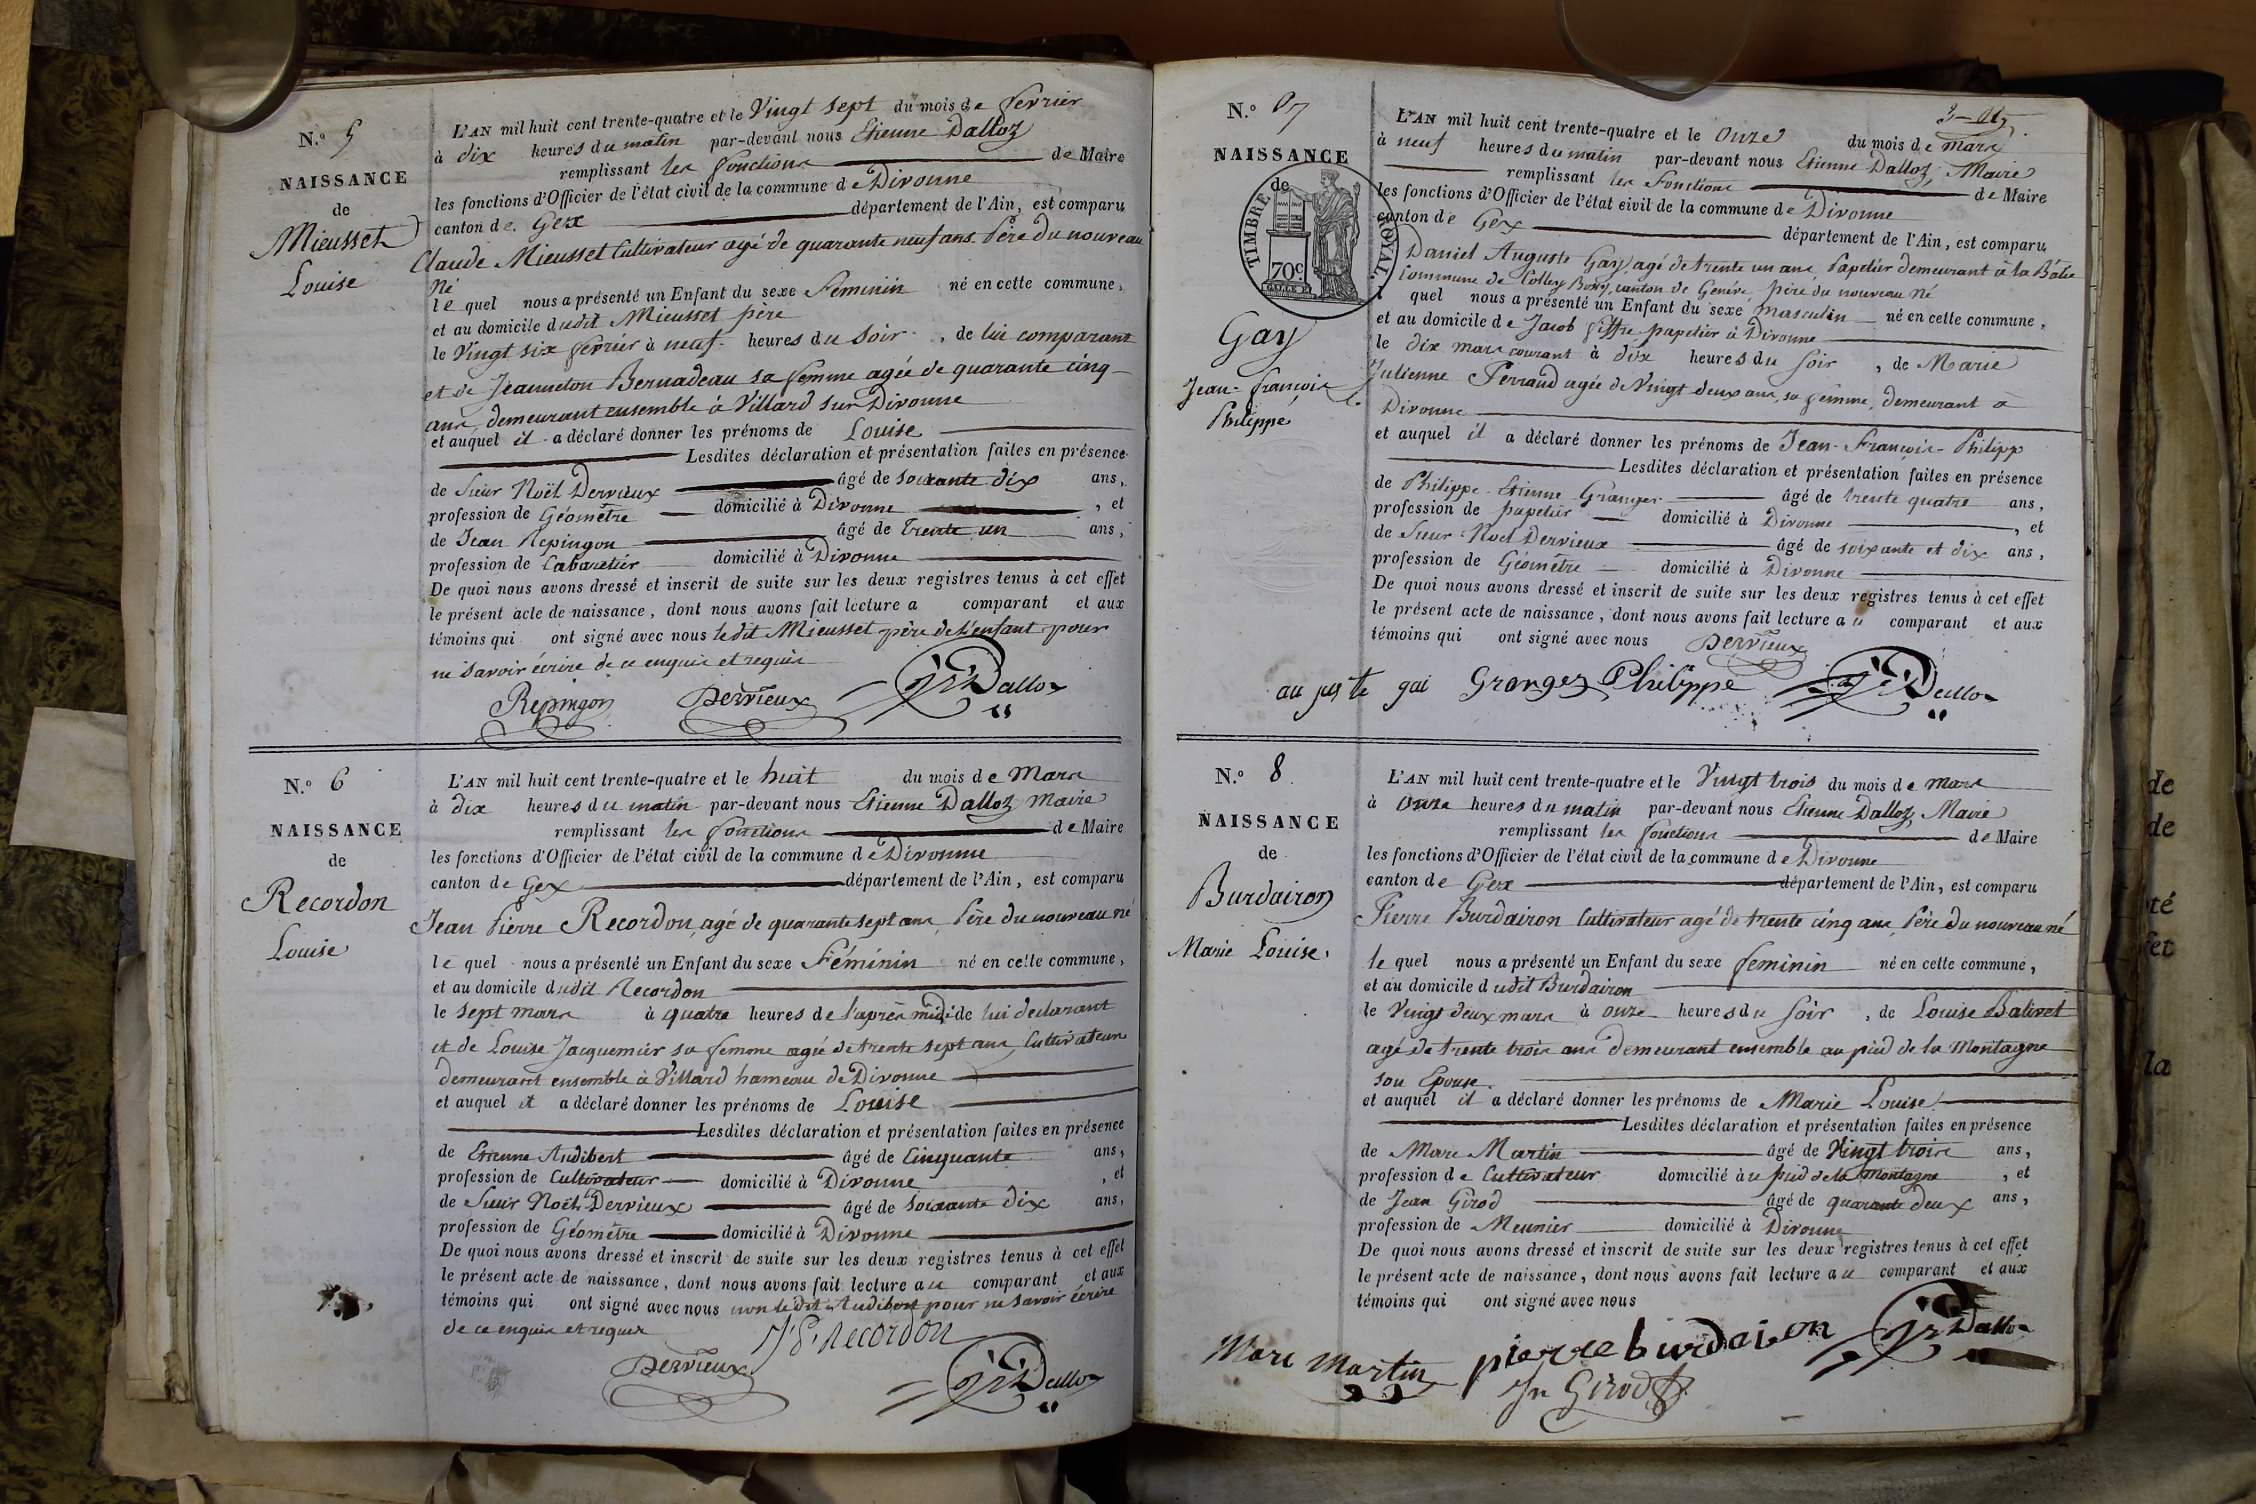 N.º 5
NAISSANCE
de
Mieusset
Louise
L'AN mil huit cent trente-quatre et le Vingt sept du mois de fevrier
à dix heures du matin par-devant nous Etienne Dalloz
remplissant les fonctions de Maire
les fonctions d'Officier de l'état civil de la commune de Divonne
canton de Gex département de l'Ain, est comparu
Claude Mieusset Cultivateur agé de quarante neuf ans Père du nouveau
Né
le quel nous a présenté un Enfant du sexe Féminin né en cette commune,
et au domicile dudit Mieusset père
le Vingt six fevrier à neuf heures du Soir, de lui comparant
et de Jeanneton Bernadeau sa femme agée de quarante cinq
ans, demeurant ensemble à Villard sur Divonne
et auquel il a déclaré donner les prénoms de Louise
Lesdites déclaration et présentation faites en présence
de Sieur Noël Dervieux âgé de soixante dix ans,
profession de Géomètre domicilié à Divonne, et
de Jean Repingon âgé de trente un ans,
profession de Cabaretier domicilié à Divonne
De quoi nous avons dressé et inscrit de suite sur les deux registres tenus à cet effet
le présent acte de naissance, dont nous avons fait lecture a comparant et aux
témoins qui ont signé avec nous ledit Mieusset père de l'enfant pour
ne savoir écrire de ce enquis et requis
Repingon Dervieux Dalloz
N.º 6
NAISSANCE
de
Recordon
Louise
L'AN mil huit cent trente-quatre et le huit du mois de Mars
à dix heures du matin par-devant nous Etienne Dalloz Maire
remplissant les fonctions de Maire
les fonctions d'Officier de l'état civil de la commune de Divonne
canton de Gex département de l'Ain, est comparu
Jean Pierre Recordon, agé de quarante sept ans, Père du nouveau né
le quel nous a présenté un Enfant du sexe Féminin né en cette commune,
et au domicile dudit Recordon
le sept mars à quatre heures de l'après midi de lui declarant
et de Louise Jacquemier sa femme agée de trente sept ans, Cultivateurs
demeurant ensemble à Villard hameau de Divonne
et auquel il a déclaré donner les prénoms de Louise
Lesdites déclaration et présentation faites en présence
de Etienne Audibert âgé de Cinquante ans,
profession de Cultivateur domicilié à Divonne, et
de Sieur Noël Dervieux âgé de Soixante dix ans,
profession de Géomètre domicilié à Divonne
De quoi nous avons dressé et inscrit de suite sur les deux registres tenus à cet effet
le présent acte de naissance, dont nous avons fait lecture au comparant et aux
témoins qui ont signé avec nous non ledit Audibert pour ne savoir écrire
de ce enquis et requis
J P Recordon
Dervieux Dalloz
N.º 7
NAISSANCE
de
TIMBRE ROYAL.
70c
Gay
Jean-François
Philippe
L'AN mil huit cent trente-quatre et le Onze du mois de mars
à neuf heures du matin par-devant nous Etienne Dalloz, Maire
remplissant les fonctions de Maire
les fonctions d'Officier de l'état civil de la commune de Divonne
canton de Gex département de l'Ain, est comparu
Daniel Auguste Gay, agé de trente un ans, Papetier demeurant à la Bâtie
Commune de Collex Bossy, canton de Genève, père du nouveau Né
quel nous a présenté un Enfant du sexe masculin né en cette commune,
et au domicile de Jacob papetier à Divonne
le dix mars courant à dix heures du Soir, de Marie
Julienne Perraud agée de Vingt deux ans, sa femme, demeurant à
Divonne
et auquel il a déclaré donner les prénoms de Jean-François-Philipp
Lesdites déclaration et présentation faites en présence
de Philippe Etienne Granger âgé de trente quatre ans,
profession de papetier domicilié à Divonne, et
de Sieur Noël Dervieux âgé de soixante et dix ans,
profession de Géomètre domicilié à Divonne
De quoi nous avons dressé et inscrit de suite sur les deux registres tenus à cet effet
le présent acte de naissance, dont nous avons fait lecture au comparant et aux
témoins qui ont signé avec nous Dervieux
au juste gai Granger Philippe Dalloz
N.º 8
NAISSANCE
de
Burdairon
Marie Louise
L'AN mil huit cent trente-quatre et le Vingt trois du mois de mars
à Onze heures du matin par-devant nous Etienne Dalloz, Maire
remplissant les fonctions de Maire
les fonctions d'Officier de l'état civil de la commune de Divonne
canton de Gex département de l'Ain, est comparu
Pierre Burdairon Cultivateur agé de trente cinq ans, Père du nouveau né
le quel nous a présenté un Enfant du sexe feminin né en cette commune,
et au domicile dudit Burdairon
le Vingt deux mars à onze heures du Soir, de Louise Balivet
agé de trente trois ans demeurant ensemble au pied de la Montagne
son Epouse.
et auquel il a déclaré donner les prénoms de Marie Louise
Lesdites déclaration et présentation faites en présence
de Marc Martin âgé de Vingt trois ans,
profession de Cultivateur domicilié au pied de la Montagne, et
de Jean Girod âgé de quarante deux ans,
profession de Meunier domicilié à Divonne
De quoi nous avons dressé et inscrit de suite sur les deux registres tenus à cet effet
le présent acte de naissance, dont nous avons fait lecture au comparant et aux
témoins qui ont signé avec nous
Marc Martin pierre burdairon Dalloz
Jn Girod
de
de
té
fet
la